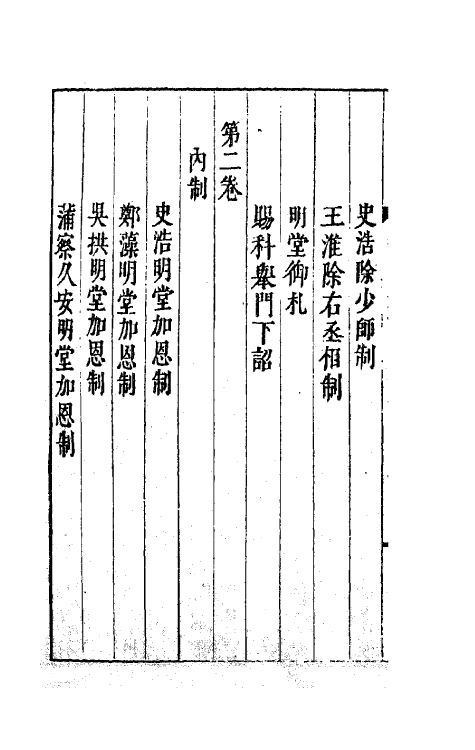 史浩除少師制
王淮除右丞相制
明堂御札
賜科舉門下詔
第二卷
內制
史浩明堂加恩制
鄭藻明堂加恩制
吳拱明堂加恩制
蒲察久安明堂加恩制